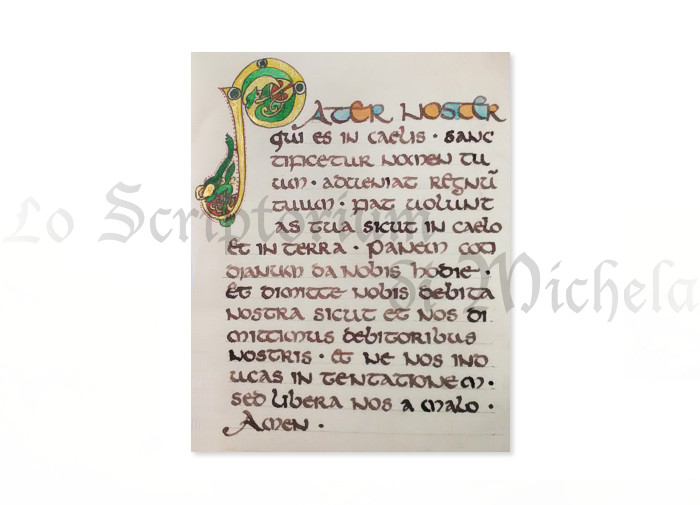 PATER NOSTER
QUI ES IN CAELIS · SANC
TIFICETUR NOMEN TU
UM · ADUENIAT REGNŪ
TUUM · FIAT UOLUNT
AS TUA SICUT IN CAELO
ET IN TERRA · PANEM COTI
DIANUM DA NOBIS HODIE ·
ET DIMITTE NOBIS DEBITA
NOSTRA SICUT ET NOS DI
MITTIMUS DEBITORIBUS
NOSTRIS · ET NE NOS IND
UCAS IN TENTATIONEM ·
SED LIBERA NOS A MALO ·
AMEN ·
Lo Scriptorium
di Michela